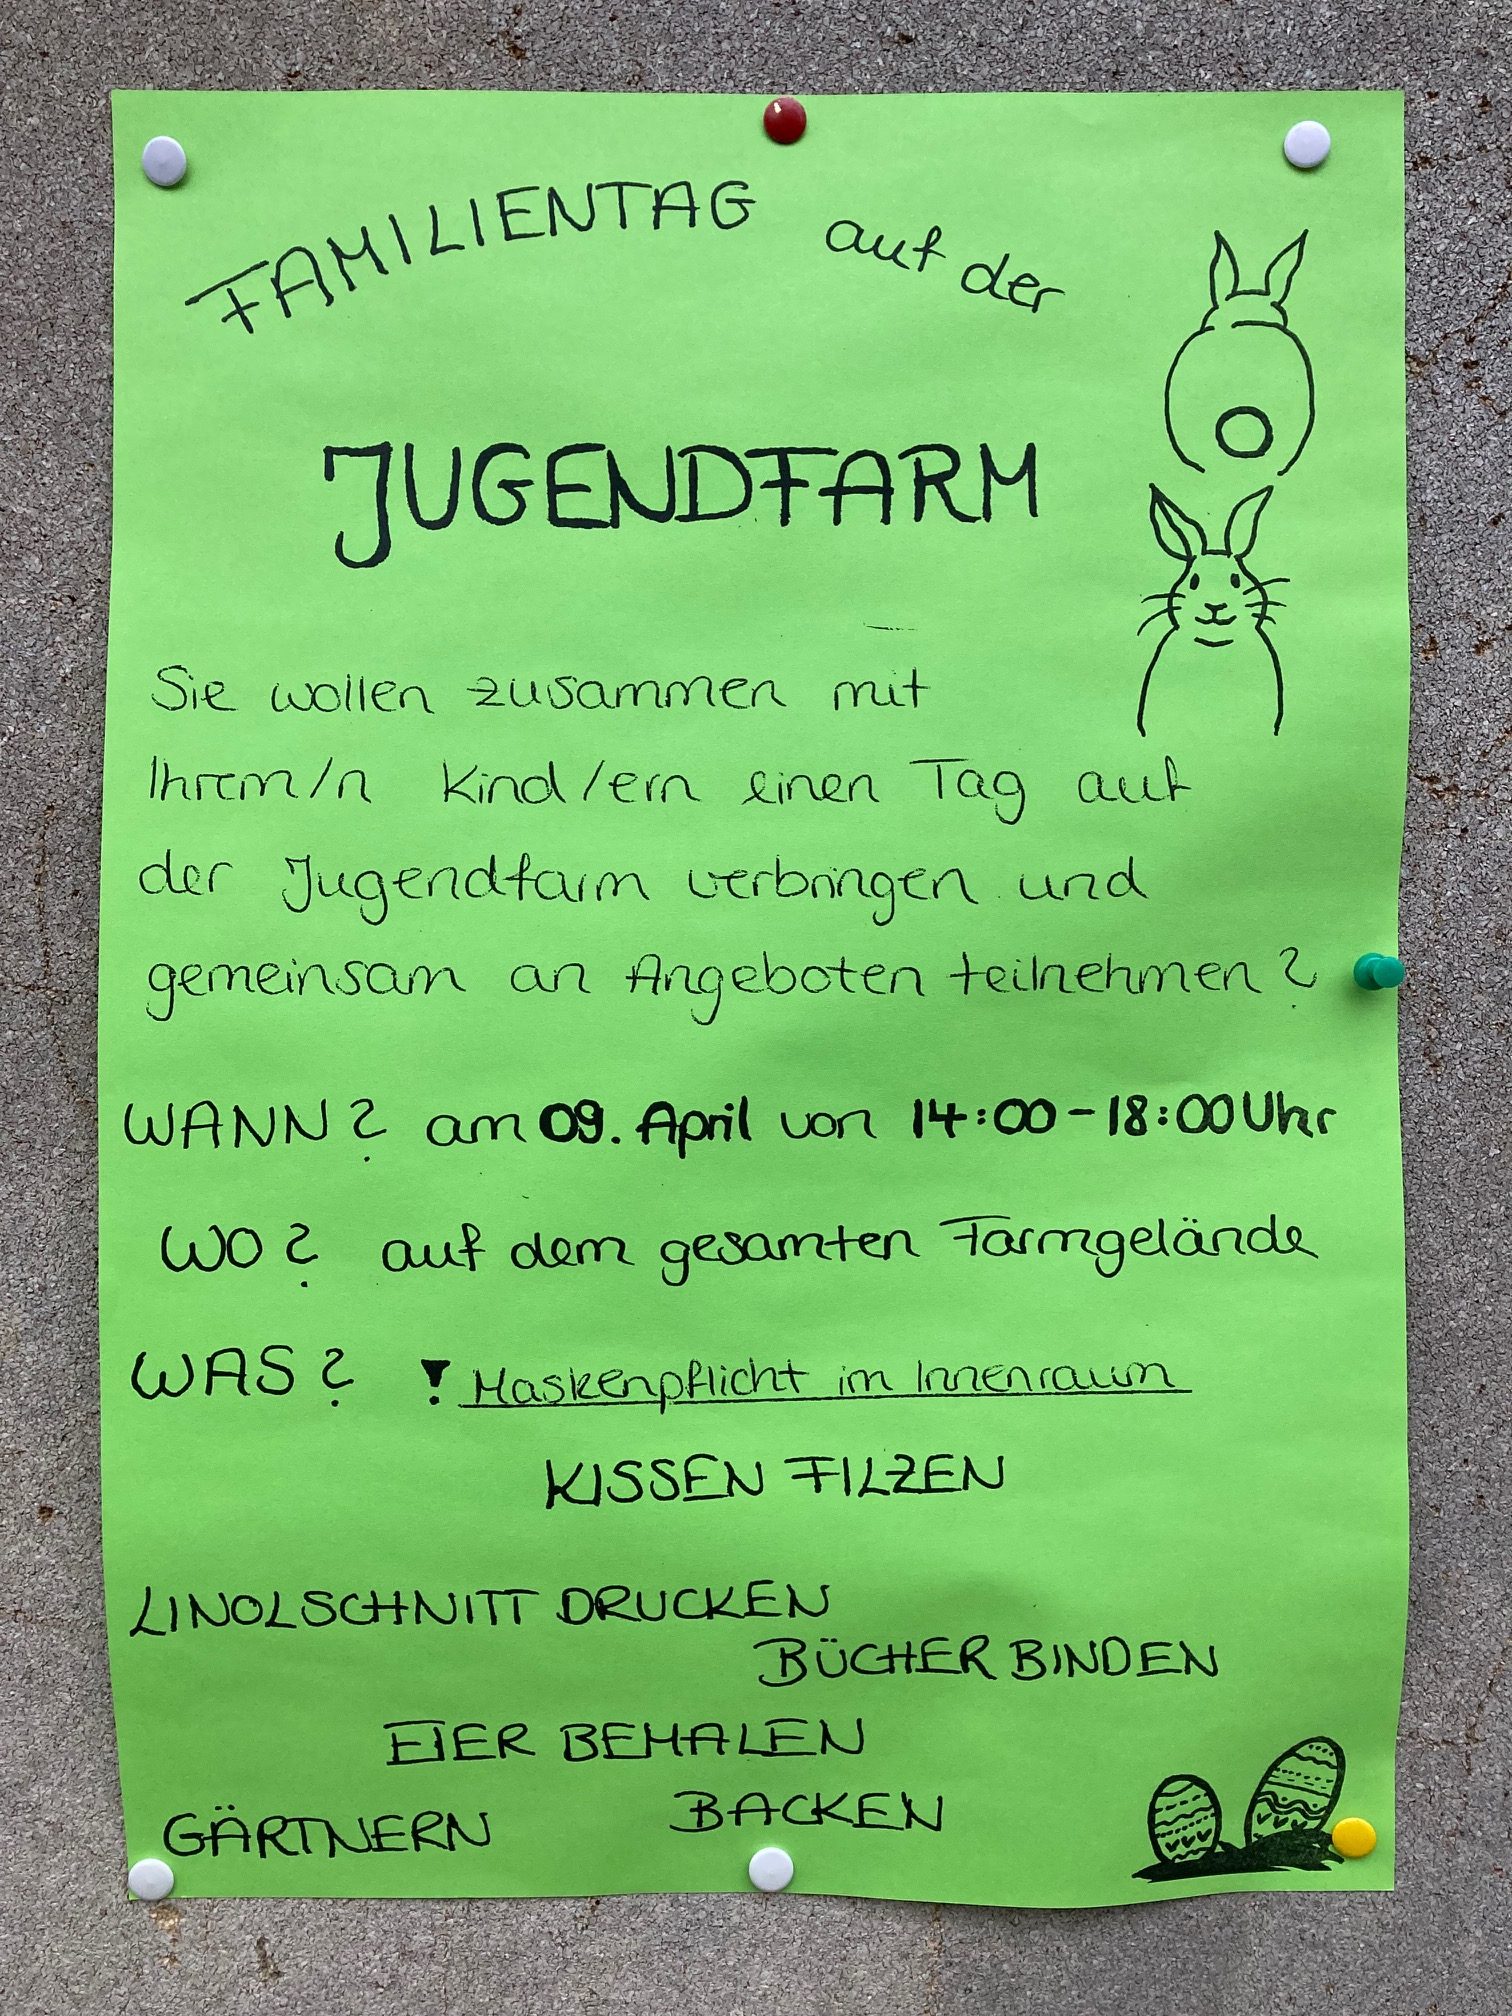 FAMILIENTAG auf der
JUGENDFARM
Sie wollen zusammen mit
Ihrem/n Kind/ern einen Tag auf
der Jugendfarm verbringen und
gemeinsam an Angeboten teilnehmen?
WANN? am 09. April von 14:00-18:00 Uhr
WO? auf dem gesamten Farmgelände
WAS? ! Maskenpflicht im Innenraum
KISSEN FILZEN
LINOLSCHNITT DRUCKEN
BÜCHER BINDEN
EIER BEMALEN
BACKEN
GÄRTNERN